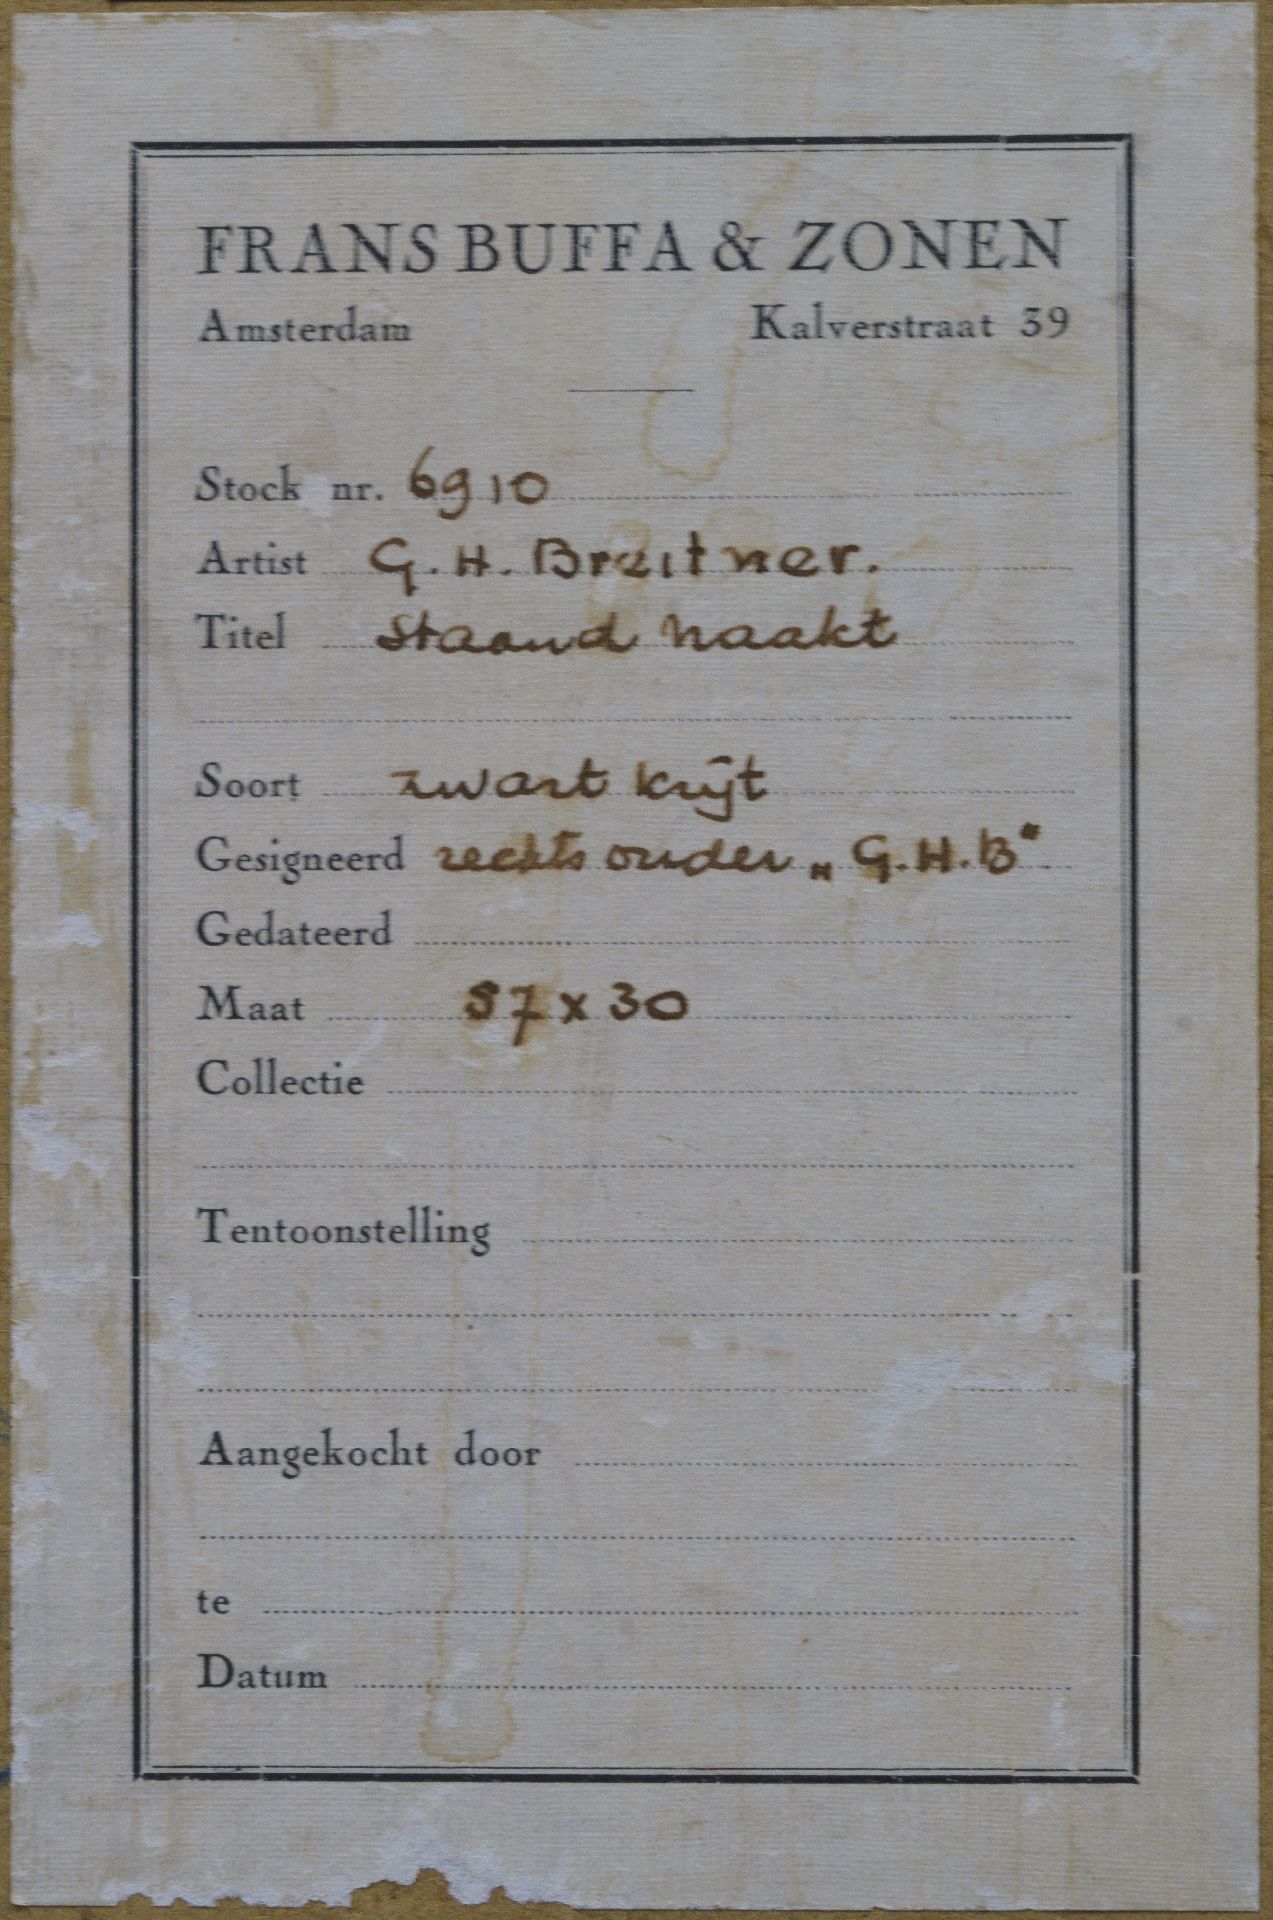 FRANS BUFFA & ZONEN
Amsterdam Kalverstraat 39
Stock nr. 6910
Artist G. H. Breitner.
Titel Staand naakt
Soort zwart krijt
Gesigneerd rechts onder „G.H.B"
Gedateerd
Maat 57 x 30
Collectie
Tentoonstelling
Aangekocht door
te
Datum